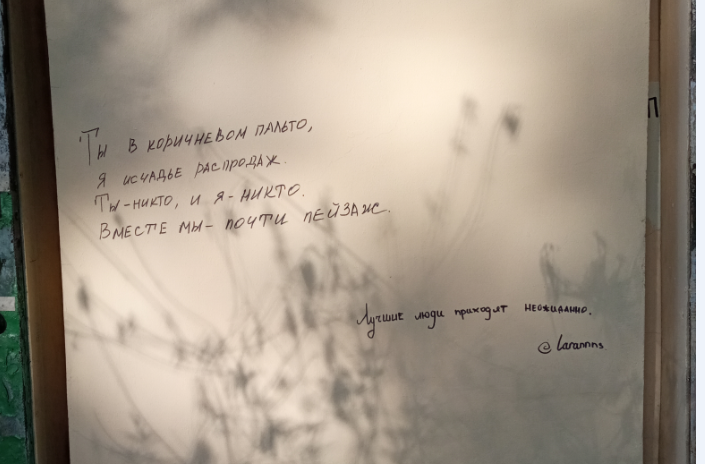 Ты в коричневом пальто,
Я исчадье распродаж.
Ты-никто, и я-никто.
Вместе мы- почти пейзаж.
П
Лучшие люди приходят неожиданно.
@larannns